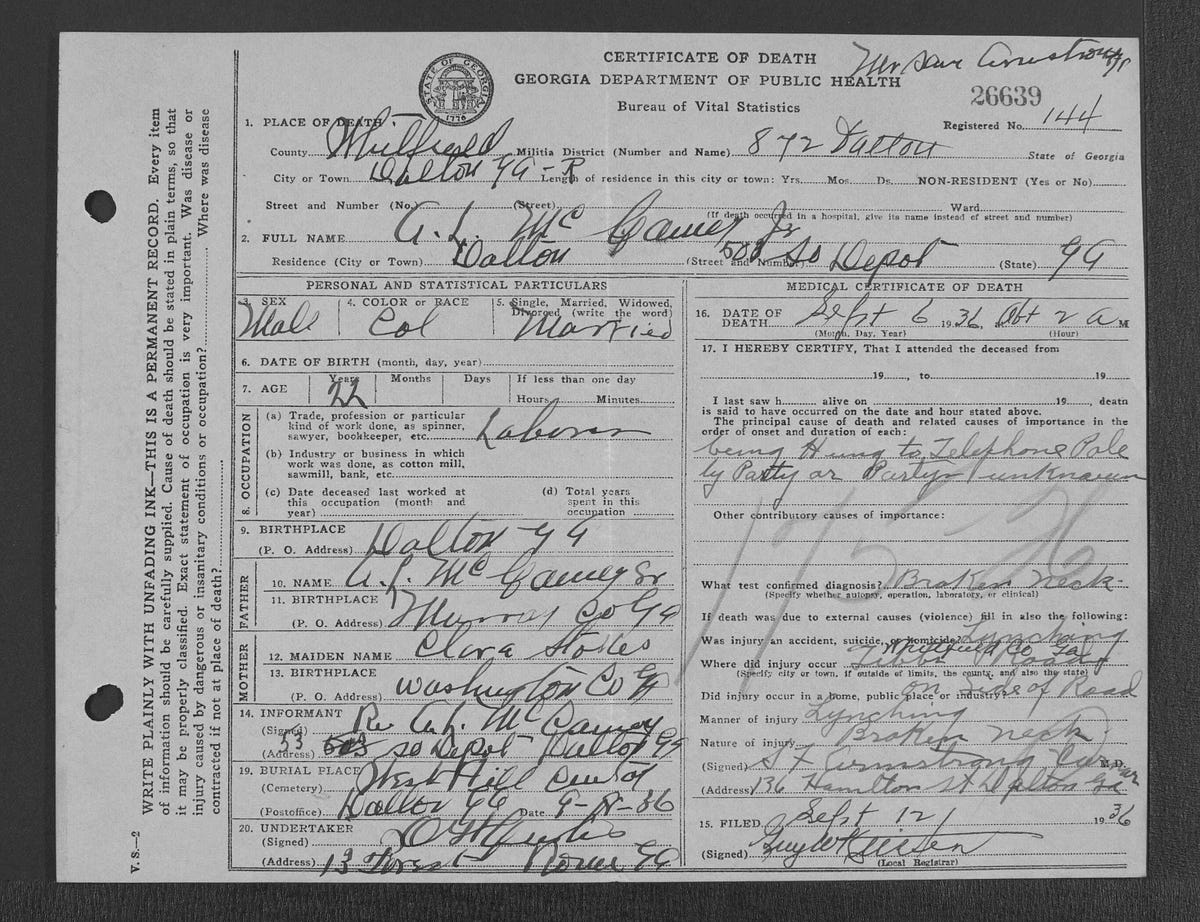 CERTIFICATE OF DEATH
GEORGIA DEPARTMENT OF PUBLIC HEALTH
Bureau of Vital Statistics
STATE OF GEORGIA
1776
26639
Registered No. 144
1. PLACE OF DEATH
County Whitfield Militia District (Number and Name) 872 Dalton State of Georgia
City or Town Dalton GA - R Length of residence in this city or town: Yrs. Mos. Ds. NON-RESIDENT (Yes or No)
Street and Number (No.) (Street) Ward
(If death occurred in a hospital, give its name instead of street and number)
2. FULL NAME A. L. McCamey Jr
Residence (City or Town) Dalton (Street and Number) 503 So Depot (State) GA
PERSONAL AND STATISTICAL PARTICULARS
3. SEX Male
4. COLOR or RACE Col
5. Single, Married, Widowed, Divorced (write the word) Married
6. DATE OF BIRTH (month, day, year)
7. AGE Years 22 Months Days If less than one day
Hours Minutes
8. OCCUPATION
(a) Trade, profession or particular
kind of work done, as spinner,
sawyer, bookkeeper, etc. Laborer
(b) Industry or business in which
work was done, as cotton mill,
sawmill, bank, etc.
(c) Date deceased last worked at
this occupation (month and
year)
(d) Total years
spent in this
occupation
9. BIRTHPLACE
(P. O. Address) Dalton GA
FATHER
10. NAME A. L. McCamey Sr
11. BIRTHPLACE
(P. O. Address) Murray Co GA
MOTHER
12. MAIDEN NAME Clara Stokes
13. BIRTHPLACE
(P. O. Address) Washington Co GA
14. INFORMANT
(Signed) Rev A. L. McCamey
(Address) 503 So Depot Dalton GA
19. BURIAL PLACE
(Cemetery) West Hill
(Postoffice) Dalton GA Date 9-8-36
20. UNDERTAKER
(Signed)
(Address) Rome GA
MEDICAL CERTIFICATE OF DEATH
16. DATE OF
DEATH Sept 6 1936, Abt 2 A M
(Month, Day, Year) (Hour)
17. I HEREBY CERTIFY, That I attended the deceased from
19 , to 19
I last saw h alive on 19 , death
is said to have occurred on the date and hour stated above.
The principal cause of death and related causes of importance in the
order of onset and duration of each:
being Hung to Telephone Pole
by Party or Partys unknown
Other contributory causes of importance:
What test confirmed diagnosis? Broken neck
(Specify whether autopsy, operation, laboratory, or clinical)
If death was due to external causes (violence) fill in also the following:
Was injury an accident, suicide, or homicide Lynching
Whitfield Co Ga
Where did injury occur Tibbs Road
(Specify city or town, if outside of limits, the county, and also the state)
Did injury occur in a home, public place or industry? on Side of Road
Manner of injury Lynching
Nature of injury Broken neck
(Signed) Armstrong M.D.
(Address) 136 Hamilton St Dalton Ga
15. FILED Sept 12 1936
(Signed)
(Local Registrar)
WRITE PLAINLY WITH UNFADING INK—THIS IS A PERMANENT RECORD. Every item
of information should be carefully supplied. Cause of death should be stated in plain terms, so that
it may be properly classified. Exact statement of occupation is very important. Was disease or
injury caused by dangerous or insanitary conditions or occupation? Where was disease
contracted if not at place of death?
V. S.—2